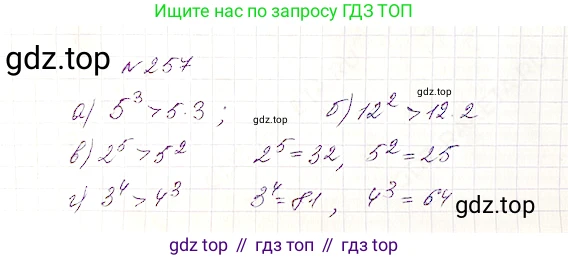 Ищите нас по запросу ГДЗ ТОП
gdz.top № 257
а) 5³ > 5·3 ; gdz.top б) 12² > 12·2
в) 2⁵ > 5² 2⁵ = 32, 5² = 25
г) 3⁴ > 4³ 3⁴ = 81, 4³ = 64 gdz.top
gdz.top // гдз топ // гдз.top